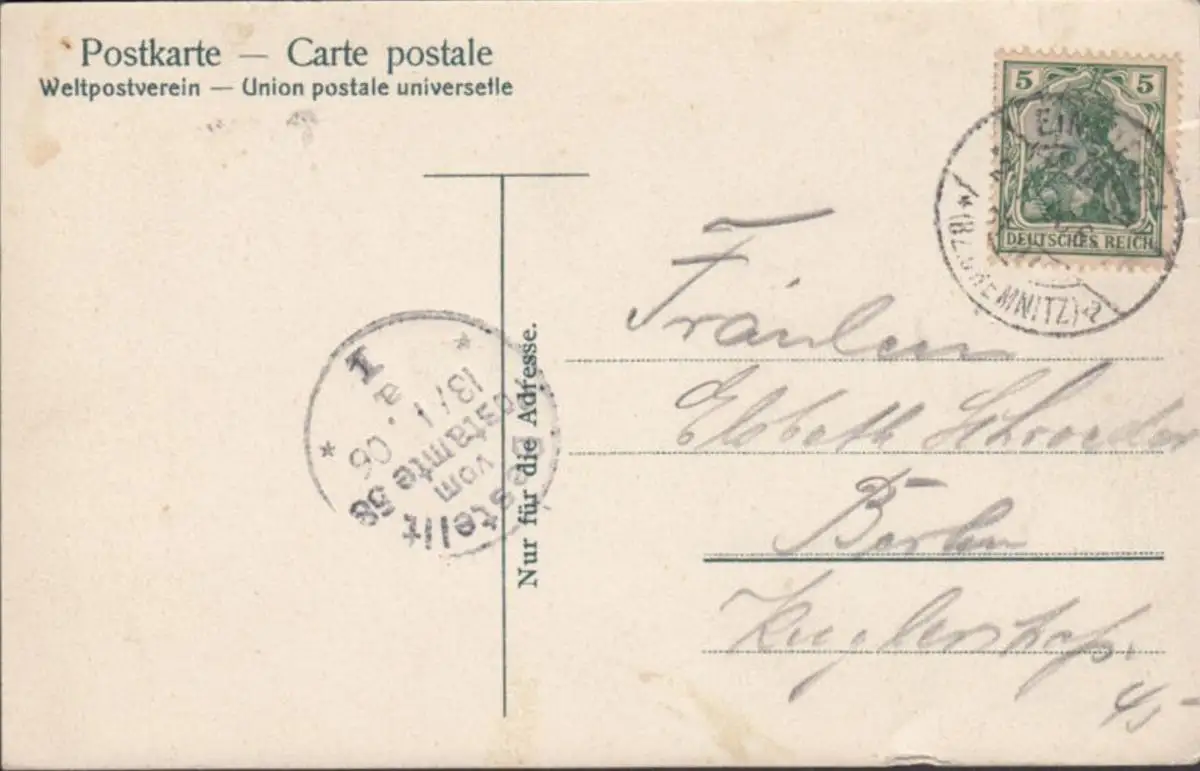 Postkarte — Carte postale
Weltpostverein — Union postale universelle
5 5
DEUTSCHES REICH
EIN
(BZ. CHEMNITZ)
Nur für die Adresse.
Bestellt
vom
Postamte 58
13/1. 06
a
I
Fräulein
Elsbeth Schroeder
Berlin
Kuglerstraße